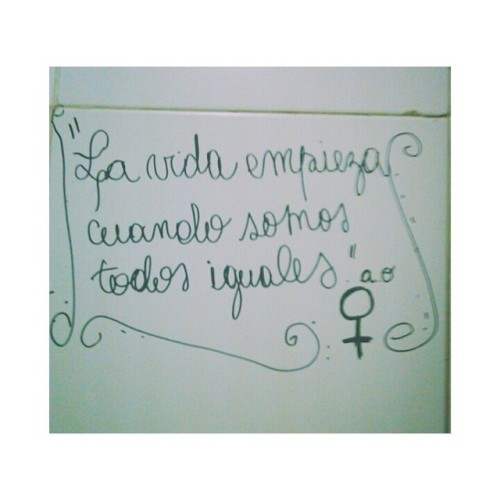 "La vida empieza
cuando somos
todos iguales" ao